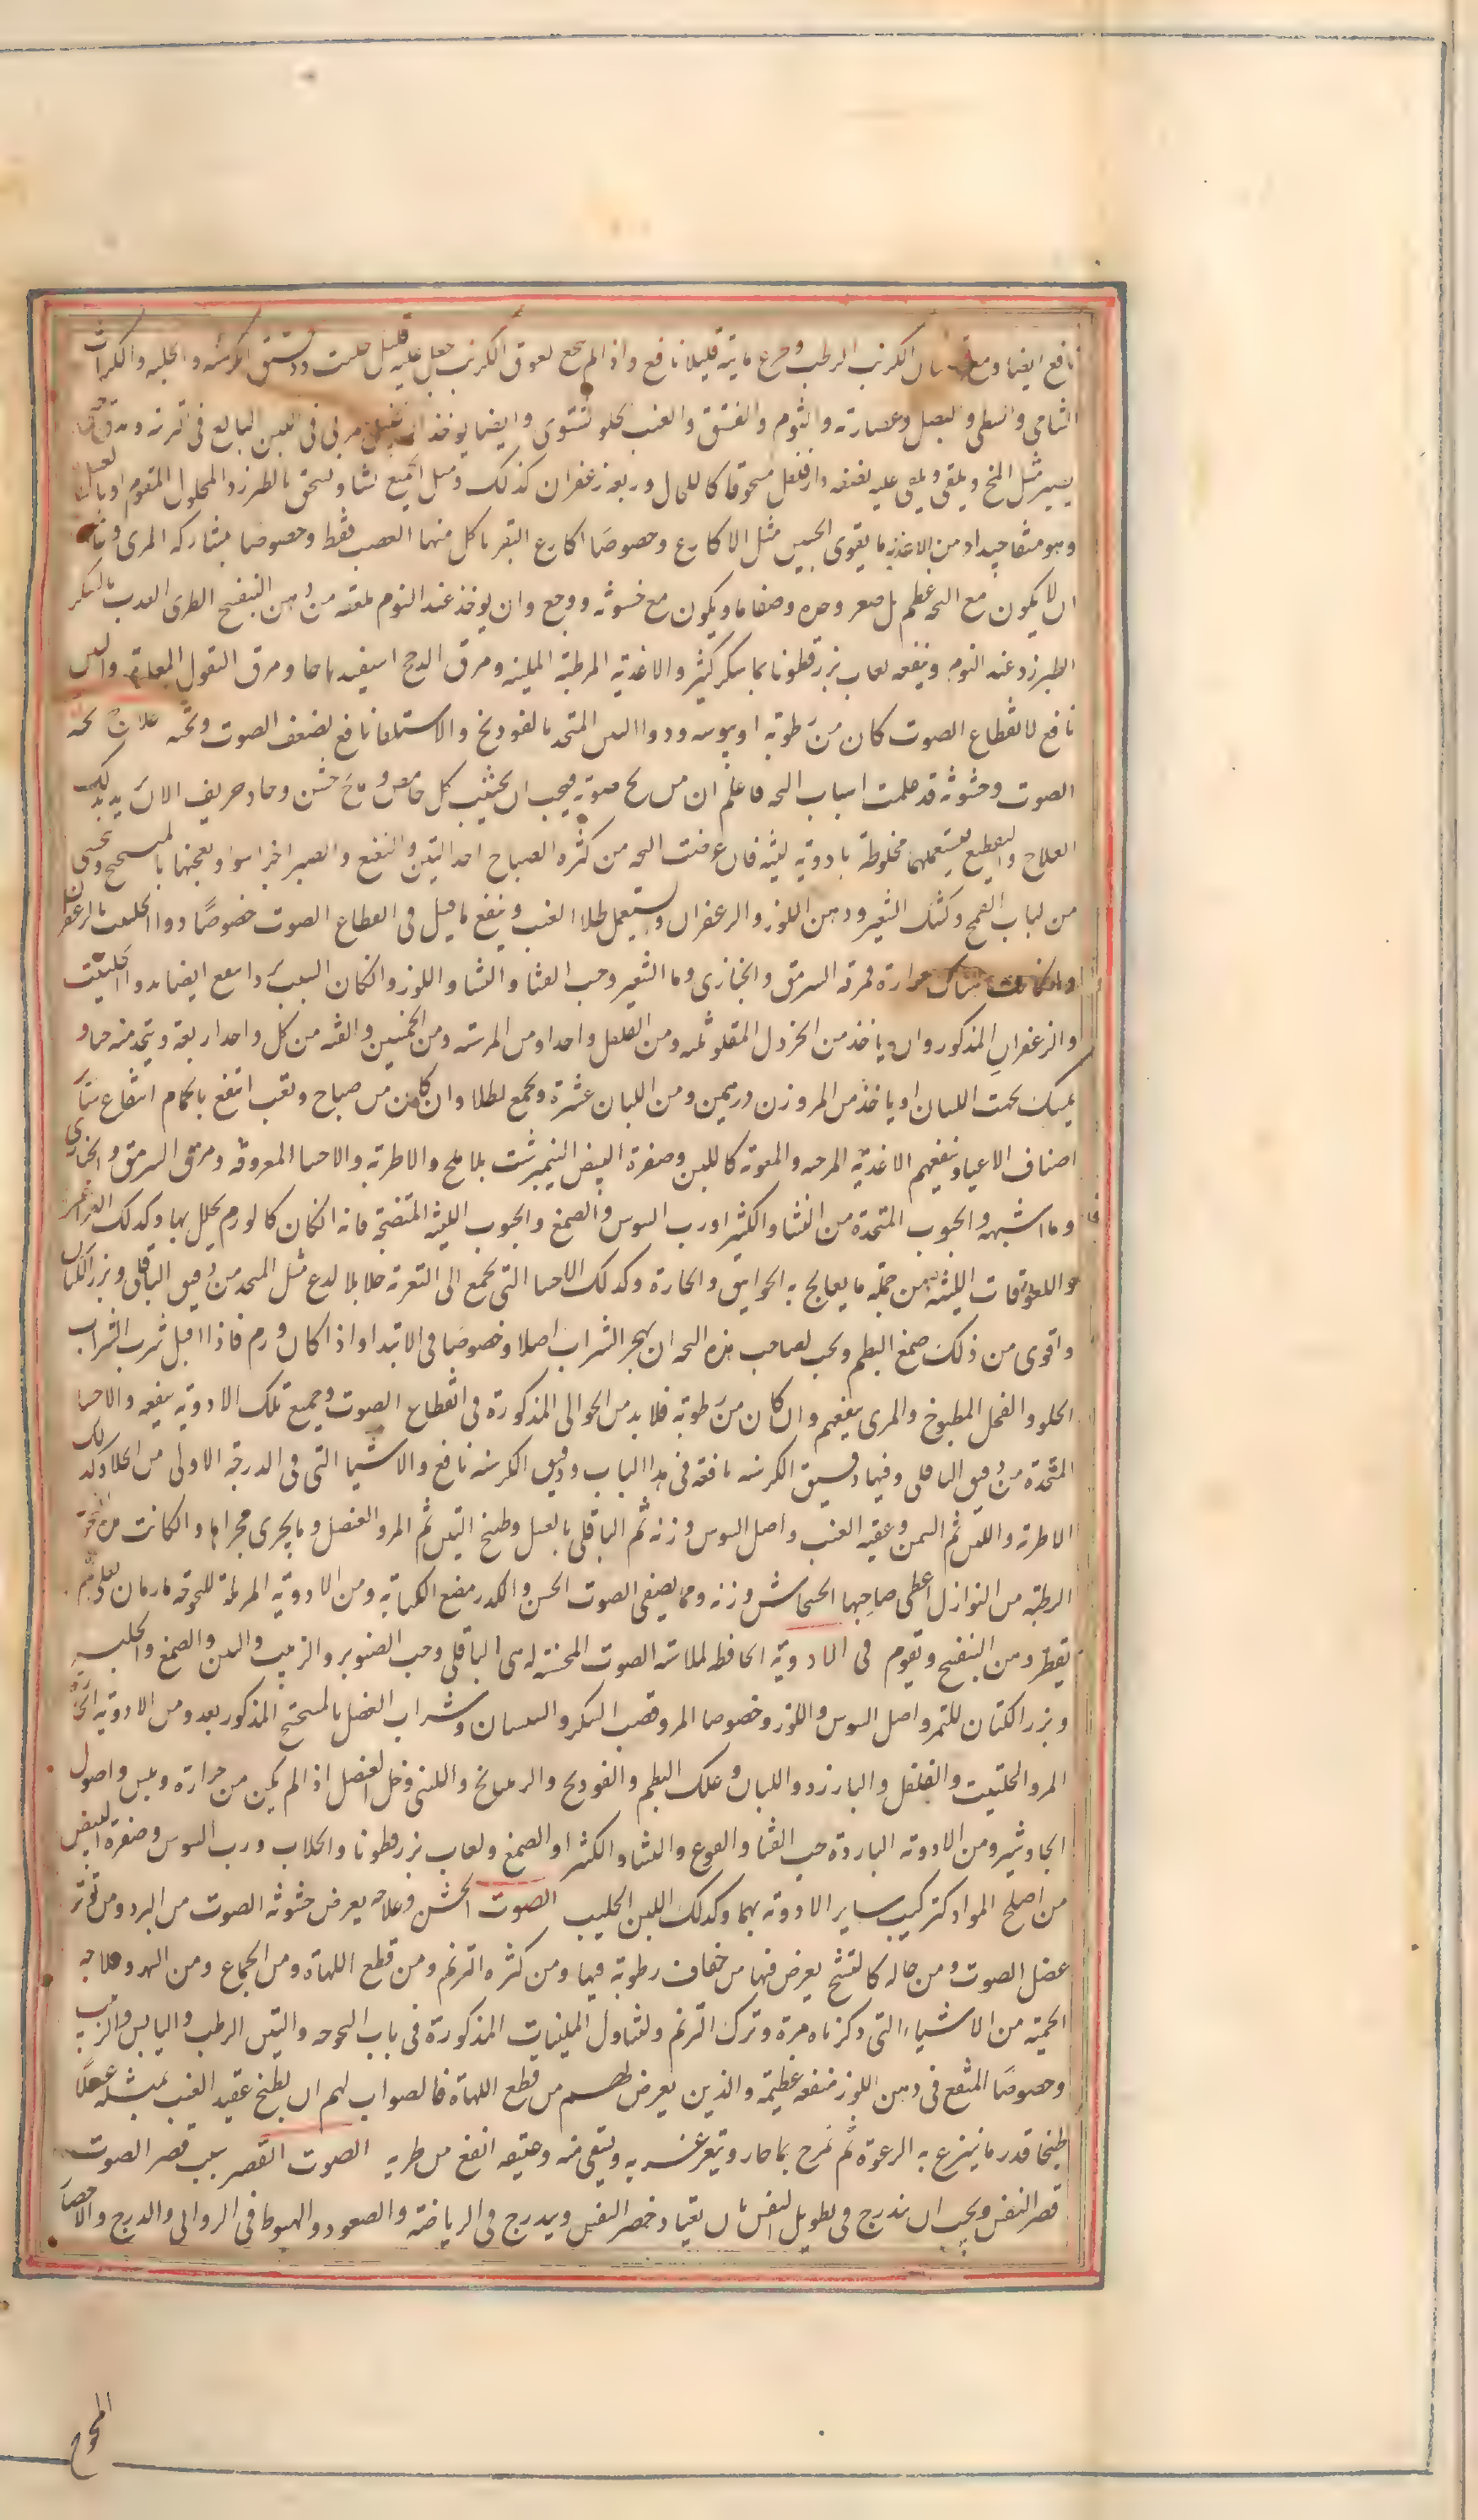 نافع ايضا ومع الكرنب الرطب وجرع مايته قليلا نافع واذا لم ينجع لعوق الكرنب جعل عليه قليل حلتيت ودقيق الكرسنه والحلبه والكراث
الشامى والنبطى والبصل وعصارته والثوم والفستق والعنب الحلو الشتوى وايضا يوخذ مربى فى اللبن البالغ فى ويدق
يسير مثل المخ ويلقى عليه لنصفه دارفلفل مسحوقا كالكحل وربعه زعفران كذلك ومثل الجميع نشا ويسحق بالطبرزد المحلول المقوم او بالعسل
وهو منقا جيدا ومن الاغذيه ما يقوى الحبس مثل الاكارع وخصوصا اكارع البقر ياكل منها العصب فقط وخصوصا بمشاركه المرى
ان لا يكون مع البحه عظم بل صغر وحده وصفا ما ويكون مع خشونه ووجع وان يوخذ عند النوم لعقه من دهن البنفسج الطرى العذب بالسكر
الطبرزد عند النوم وينفعه لعاب بزرقطونا بما سكر كثير والاغذيه المرطبه الملينه ومرق الدجج اسفيدباجا ومرق البقول
نافع لانقطاع الصوت كان من رطوبه او يبوسه ودواء المتخذ بالفودنج والاستلقا نافع لضعف الصوت وبحته علاج بحه
الصوت وخشونته قد علمت اسباب البحه فاعلم ان من بح صوته فيجب ان يجتنب كل حامض ومالح خشن وحاد حريف الا ان يريد بذلك
العلاج والتقطيع فيستعملها مخلوطه بادويه لينه فان عرضت البحه من كثره الصياح اخذ التين والنعنع والصبر اجزا سوا ويعجنها بالميبختج ويحسى
من لباب القمح وكشك الشعير ودهن اللوز والزعفران ويستعمل طلا العنب وينفع ما قيل فى انقطاع الصوت خصوصا دوا الحلتيت بالزعفران
وان كانت هناك حرارة فمرقه السرمق والخبازى وما الشعير وحب القثا والنشا واللوز وان كان السبب بردا نفع ايضا دوا الحلتيت
والزعفران المذكور وان ياخذ من الخردل المقلو ثلثه ومن الفلفل واحدا ومن الكرسنه ومن والقنه من كل واحد اربعه ويتخذ منه حبا و
يمسك تحت اللسان او ياخذ من المر وزن درهمين ومن اللبان عشرة ويجمع بطلا وان كانت من صياح وتعب انتفع بالحمام انتفاع ساير
اصناف الاعيا وينفعهم الاغذيه المرخيه والمغريه كاللبن وصفرة البيض النيمبرشت بلا ملح والاطريه والاحسا المعروفه ومرق السرمق والخبازى
وما اشبهه والحبوب المتخذة من النشا والكثيرا ورب السوس والصمغ والحبوب اللينه المنضجه فانه ان كان كالورم يحلل بها وكذلك الغراغر
واللعوقات اللينه من جمله ما يعالج به الخوانيق والحارة وكذلك الاحسا التى تجمع الى التغريه جلا بلا لدع مثل المتخذ من دقيق الباقلى وبزر الكتان
واقوى من ذلك صمغ البطم ويجب لصاحب هذه البحه ان يهجر الشراب اصلا وخصوصا فى الابتدا واذا كان ورم فاذا اقبل شرب الشراب
الحلو والفجل المطبوخ والمرى ينفعهم وان كان من رطوبه فلا بد من الجوالى المذكورة فى انقطاع الصوت وجميع تلك الادويه ينفعه والاحسا
المتخذة من دقيق الباقلى وفيها دقيق الكرسنه نافعه فى هذا الباب ودقيق الكرسنه نافع والاشيا التى فى الدرجه الاولى من الجلا وكذلك
الاطريه واللبن ثم السمن وعقيد العنب واصل السوس وزنه ثم الباقلى بالعسل وطبيخ التين ثم المر والعنصل وما يجرى مجراها وان كانت من
الرطبه من النوازل اعطى صاحبها الخشخاش وزنه ومما يصفى الصوت الخشن والكدر مضغ الكبابه ومن الادويه المزيله للبحوحه ما رمان يغلى ثم
يقطر دهن البنفسج ويقوم فى الادويه الحافظه لملاسه الصوت المحسنه له هى الباقلى وحب الصنوبر والزبيب والتين والصمغ والحلبه
وبزر الكتان والتمر واصل السوس واللوز وخصوصا المر وقصب السكر والسبستان وشراب العنصل بالميبختج المذكور بعد ومن الادويه الحارة
المر والحلتيت والفلفل والبارزد واللبان وعلك البطم والفودنج والراتيانج واللبنى وخل العنصل اذا لم يكن من حرارة ويبس واصول
الجاوشير ومن الادويه الباردة حب القثا والقرع والنشا والكثيرا والصمغ ولعاب بزرقطونا والجلاب ورب السوس وصفرة البيض
من اصلح المواد لتركيب ساير الادويه بها وكذلك اللبن الحليب الصوت الخشن وعلاجه يعرض خشونه الصوت من البرد ومن توتر
عضل الصوت ومن حاله كالتشنج يعرض فيها من جفاف رطوبه فيها ومن كثره الترنم ومن قطع اللهاة ومن الجماع ومن السهر وعلاجه
الحميه من الاشياء التى ذكرناه مرة وترك الترنم ولتناول الملينات المذكورة فى باب البحوحه والتين الرطب واليابس والزبيب
وخصوصا المنقع فى دهن اللوز منفعه عظيمه والذين يعرض لهم من قطع اللهاة فالصواب لهم ان يطبخ عقيد العنب بمثله عسلا
طبخا قدر ما ينزع به الرغوة ثم يمزج بما حار ويتغرغر به ويسقى منه وعتيقه انفع من طريه الصوت القصير سبب قصر الصوت
قصر النفس ويجب ان يتدرج فى تطويل النفس بان يعتاد حصر النفس ويدرج فى الرياضه والصعود والهبوط فى الروابى والدرج والاحضار
المحوج